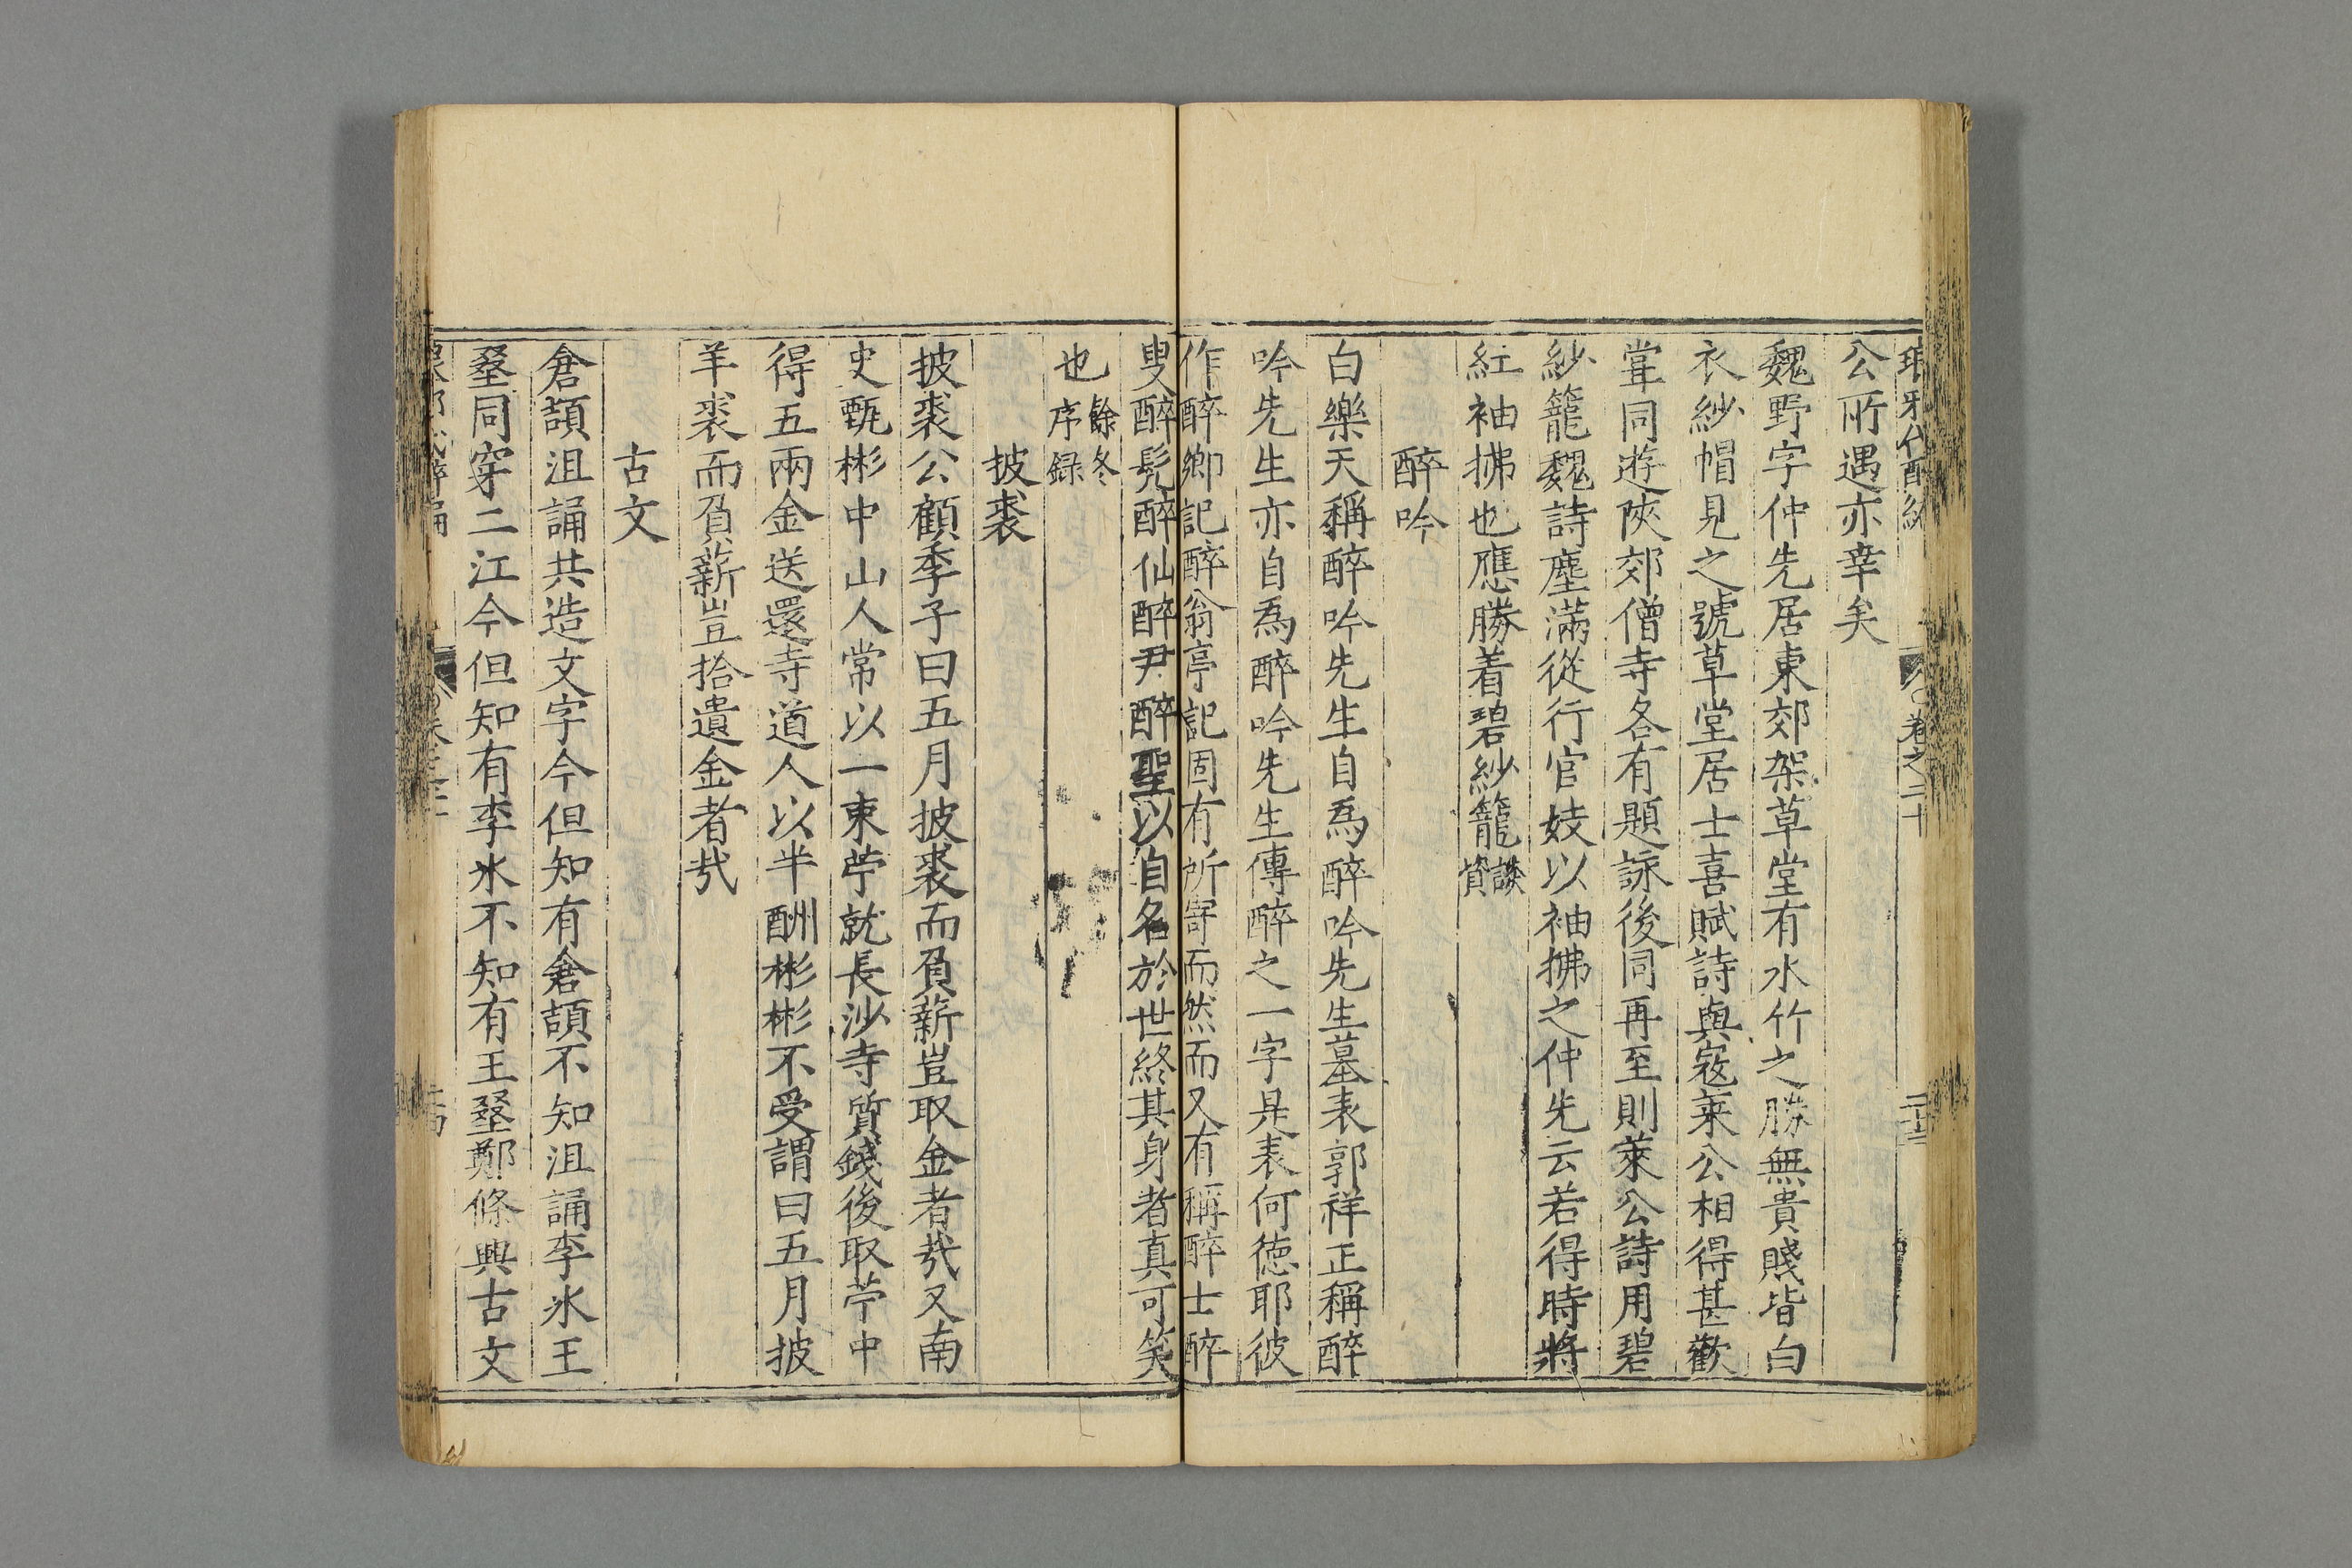 公所遇亦幸矣
魏野字仲先居東郊架草堂有水竹之勝無貴賤皆白
衣紗帽見之號草堂居士喜賦詩與寇萊公相得甚歡
嘗同遊陜郊僧寺各有題詠後同再至則萊公詩用碧
紗籠魏詩塵滿從行官妓以袖拂之仲先云若得時將
紅袖拂也應勝着碧紗籠談
資
醉吟
白樂天稱醉吟先生自為醉吟先生墓表郭祥正稱醉
吟先生亦自為醉吟先生傳醉之一字是表何德耶彼
作醉鄉記醉翁亭記固有所寄而然而又有稱醉士醉
叟醉髡醉仙醉尹醉聖以自名於世終其身者真可笑
也餘冬
序録
披裘
披裘公顧季子曰五月披裘而負薪豈取金者㢤又南
史甄彬中山人常以一束苧就長沙寺質錢後取苧中
得五兩金送還寺道人以半酬彬彬不受謂曰五月披
羊裘而負薪豈拾遺金者㢤
古文
倉頡沮誦共造文字今但知有倉頡不知沮誦李氷王
㙐同穿二江今但知有李氷不知有王㙐鄭條興古文